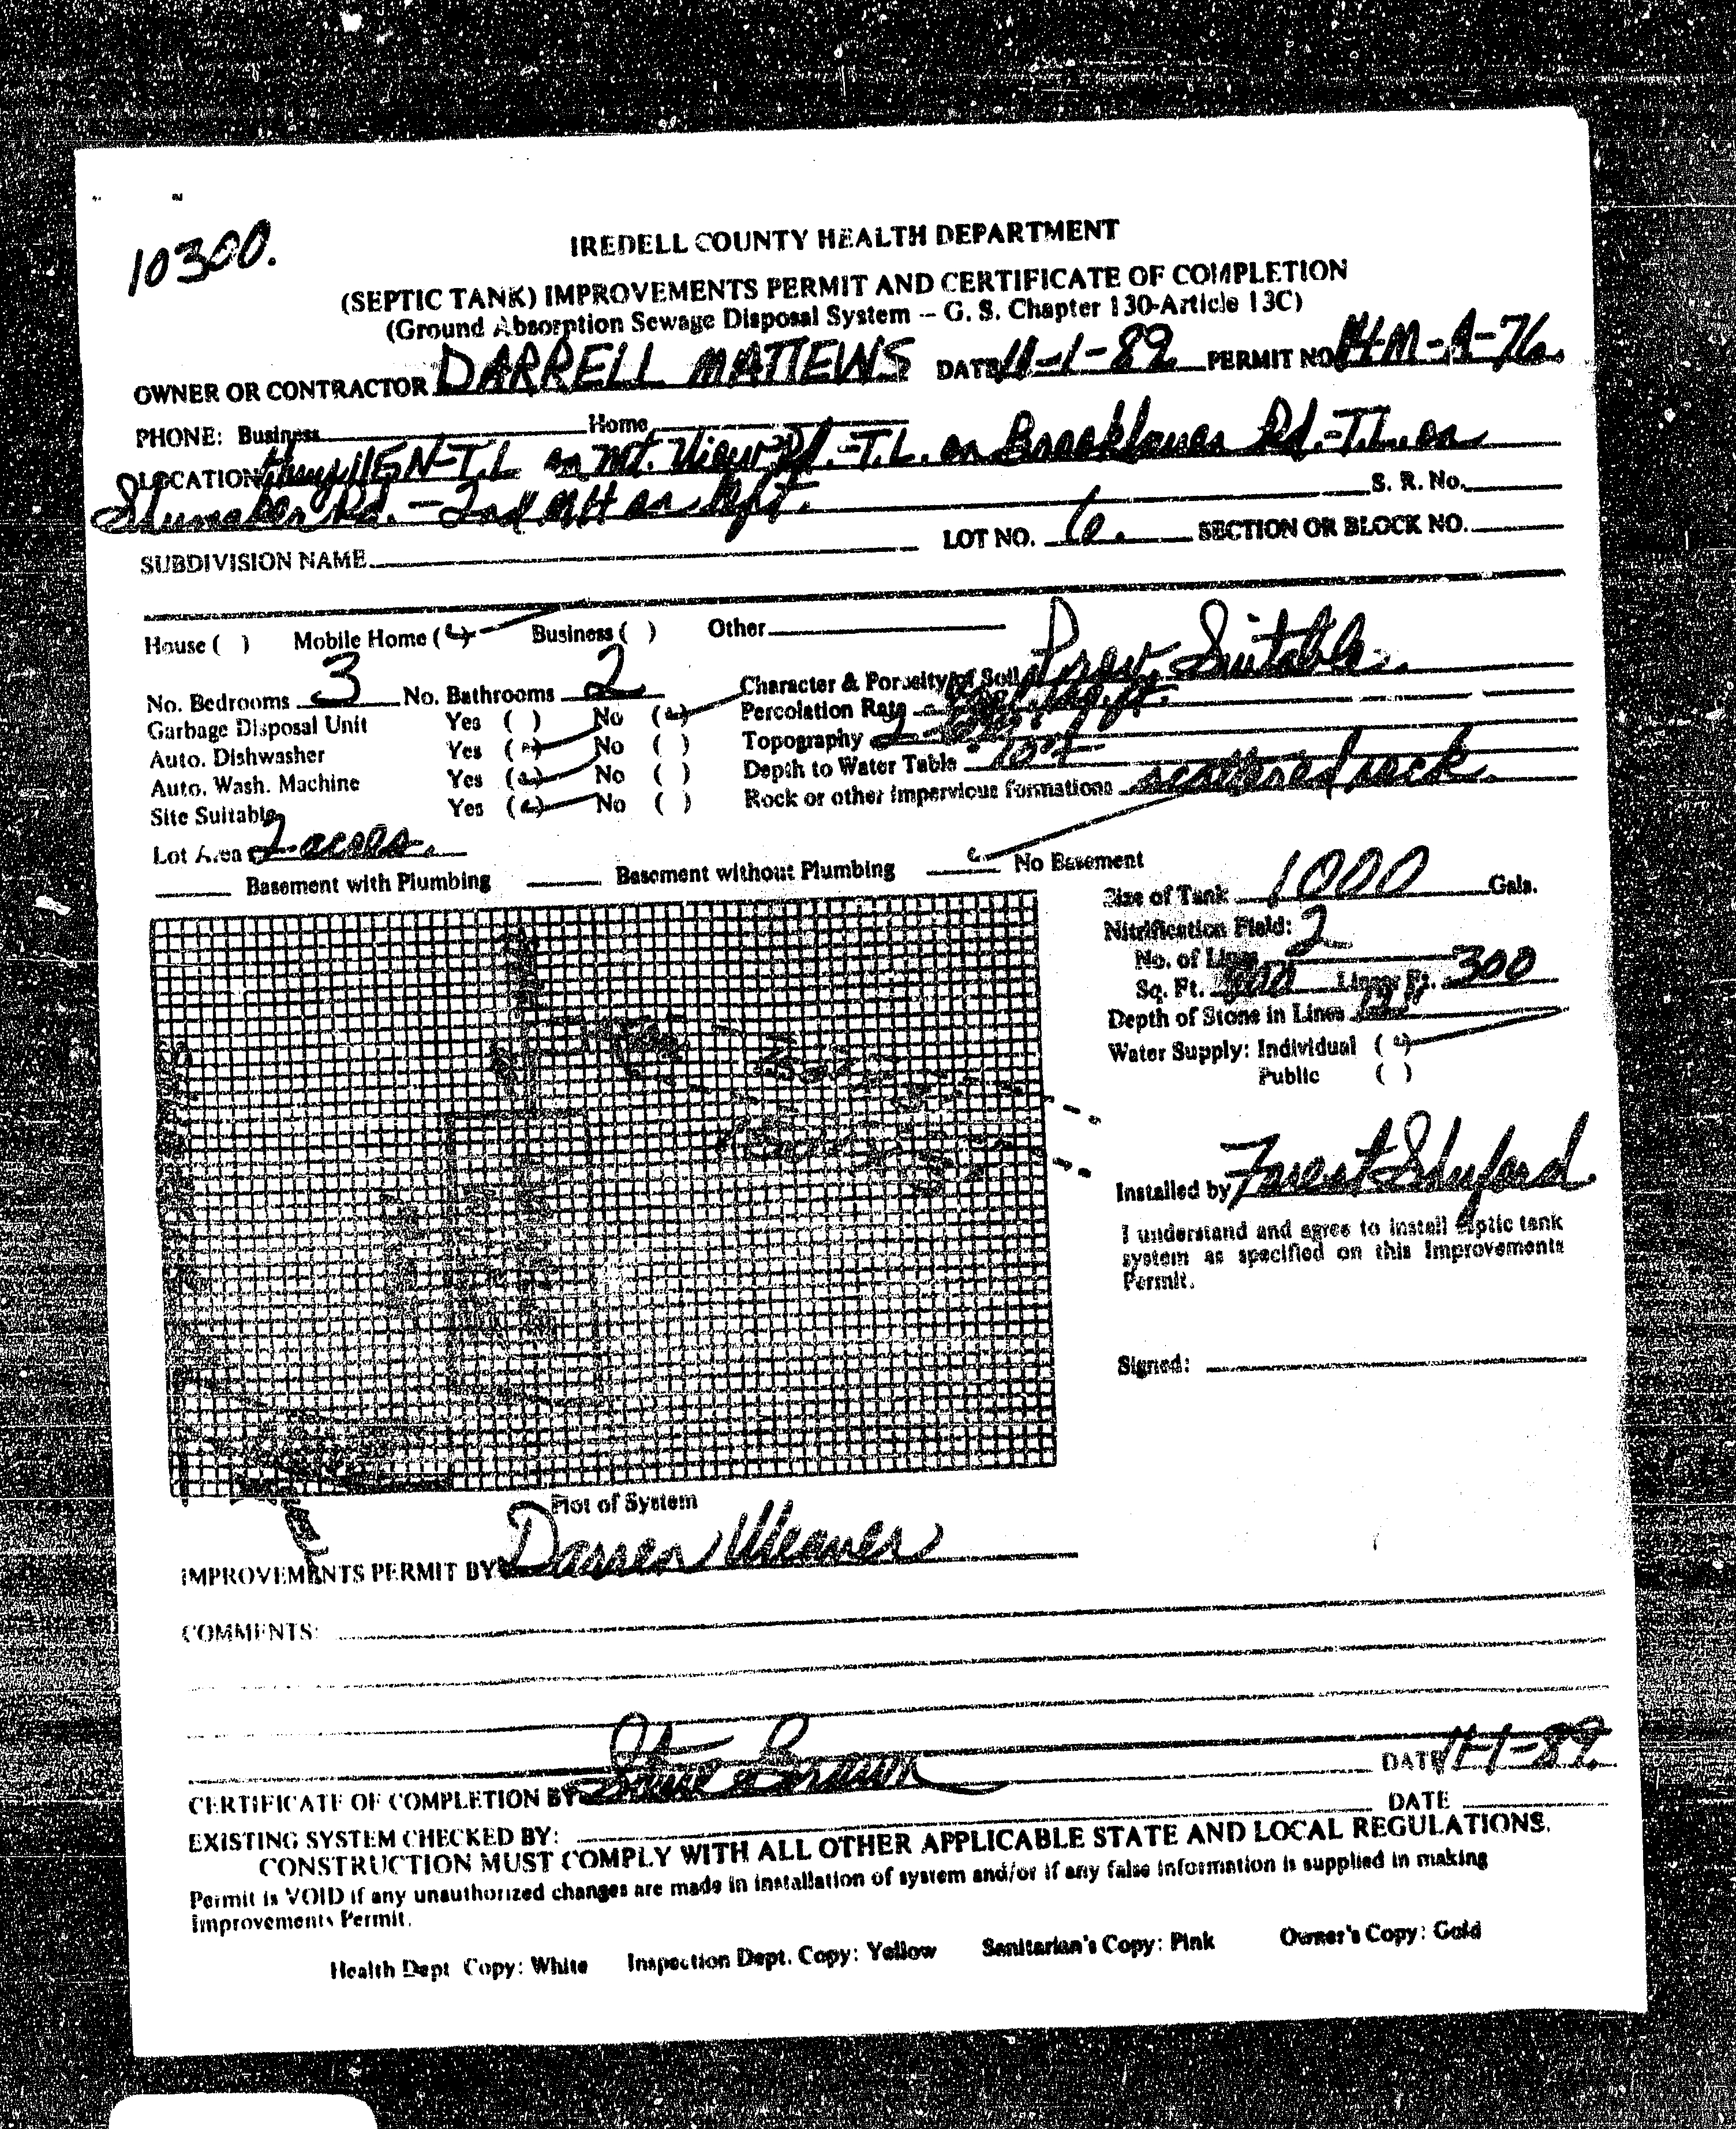 10300.
IREDELL COUNTY HEALTH DEPARTMENT
(SEPTIC TANK) IMPROVEMENTS PERMIT AND CERTIFICATE OF COMPLETION
(Ground Absorption Sewage Disposal System -- G. S. Chapter 130-Article 13C)
OWNER OR CONTRACTOR DARRELL MATTEWS DATE 11-1-89 PERMIT NO. -M-A-76.
PHONE: Business Home
LOCATION Hwy 115 N-T.L on Mt. View Rd.-T.L. on Rd.-T.L. on
Shumaker Rd. - 2nd MH on left. S. R. No.
SUBDIVISION NAME LOT NO. 6. SECTION OR BLOCK NO.
House ( ) Mobile Home ( ) Business ( ) Other
No. Bedrooms 3 No. Bathrooms 2 Character & Porosity of Soil Prov. Suitable.
Garbage Disposal Unit Yes ( ) No ( ) Percolation Rate
Auto. Dishwasher Yes ( ) No ( ) Topography
Auto. Wash. Machine Yes ( ) No ( ) Depth to Water Table
Site Suitable Yes ( ) No ( ) Rock or other impervious formations scattered rock.
Lot Area 2 acres.
Basement with Plumbing Basement without Plumbing No Basement
Size of Tank 1000 Gals.
Nitrification Field:
No. of Lines 2
Sq. Ft. Linear Ft. 300
Depth of Stone in Lines
Water Supply: Individual ( )
Public ( )
Installed by Forest Shuford.
I understand and agree to install septic tank
system as specified on this Improvements
Permit.
Signed:
Plot of System
IMPROVEMENTS PERMIT BY Darren Weaver
COMMENTS:
CERTIFICATE OF COMPLETION BY Steve Brown DATE 11-1-89.
EXISTING SYSTEM CHECKED BY: DATE
CONSTRUCTION MUST COMPLY WITH ALL OTHER APPLICABLE STATE AND LOCAL REGULATIONS.
Permit is VOID if any unauthorized changes are made in installation of system and/or if any false information is supplied in making
Improvements Permit.
Health Dept Copy: White Inspection Dept. Copy: Yellow Sanitarian's Copy: Pink Owner's Copy: Gold